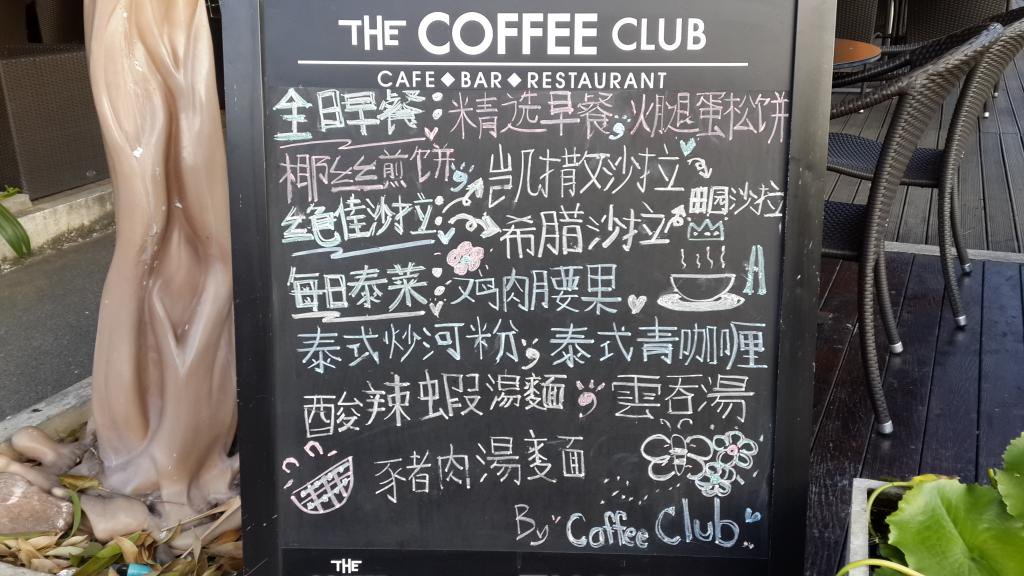 THE COFFEE CLUB
CAFE◆BAR◆RESTAURANT
全日早餐：精选早餐，火腿蛋松饼
椰丝煎饼，凯撒沙拉
绝佳沙拉：希腊沙拉 田园沙拉
每日泰菜：鸡肉腰果
泰式炒河粉，泰式青咖喱
酸辣蝦湯麵，雲吞湯
豬肉湯麵
By Coffee Club
THE